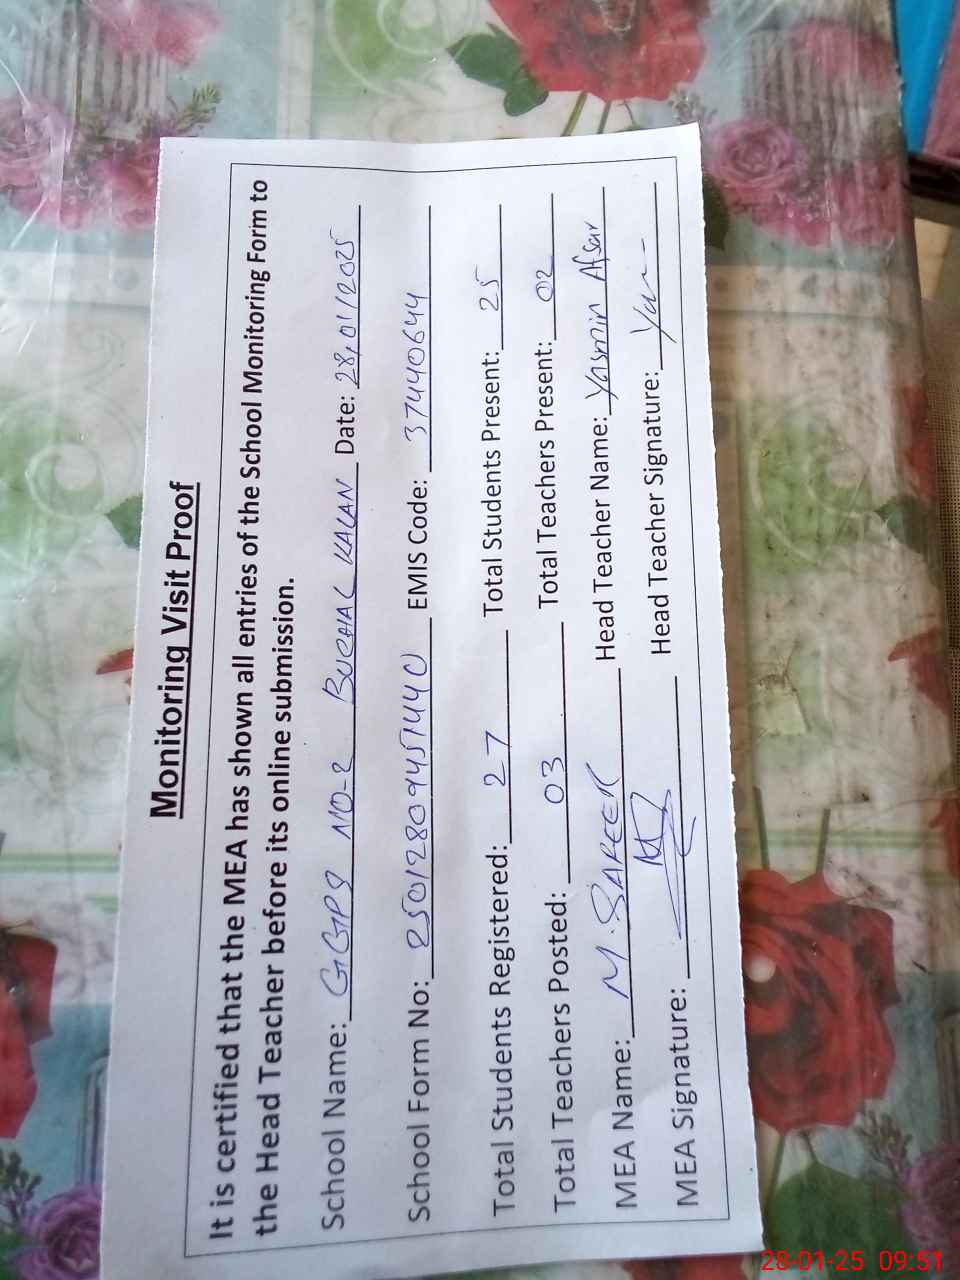 Monitoring Visit Proof
It is certified that the MEA has shown all entries of the School Monitoring Form to
the Head Teacher before its online submission.
School Name: GGPS NO-2 BUCHAL KALAN Date: 28,01/2025
School Form No: EMIS Code: 37440644
Total Students Registered: 27 Total Students Present: 25
Total Teachers Posted: 03 Total Teachers Present: 02
MEA Name: M. SAFEER Head Teacher Name: Yasmin Afsar
MEA Signature: Head Teacher Signature:
28-01-25 09:51